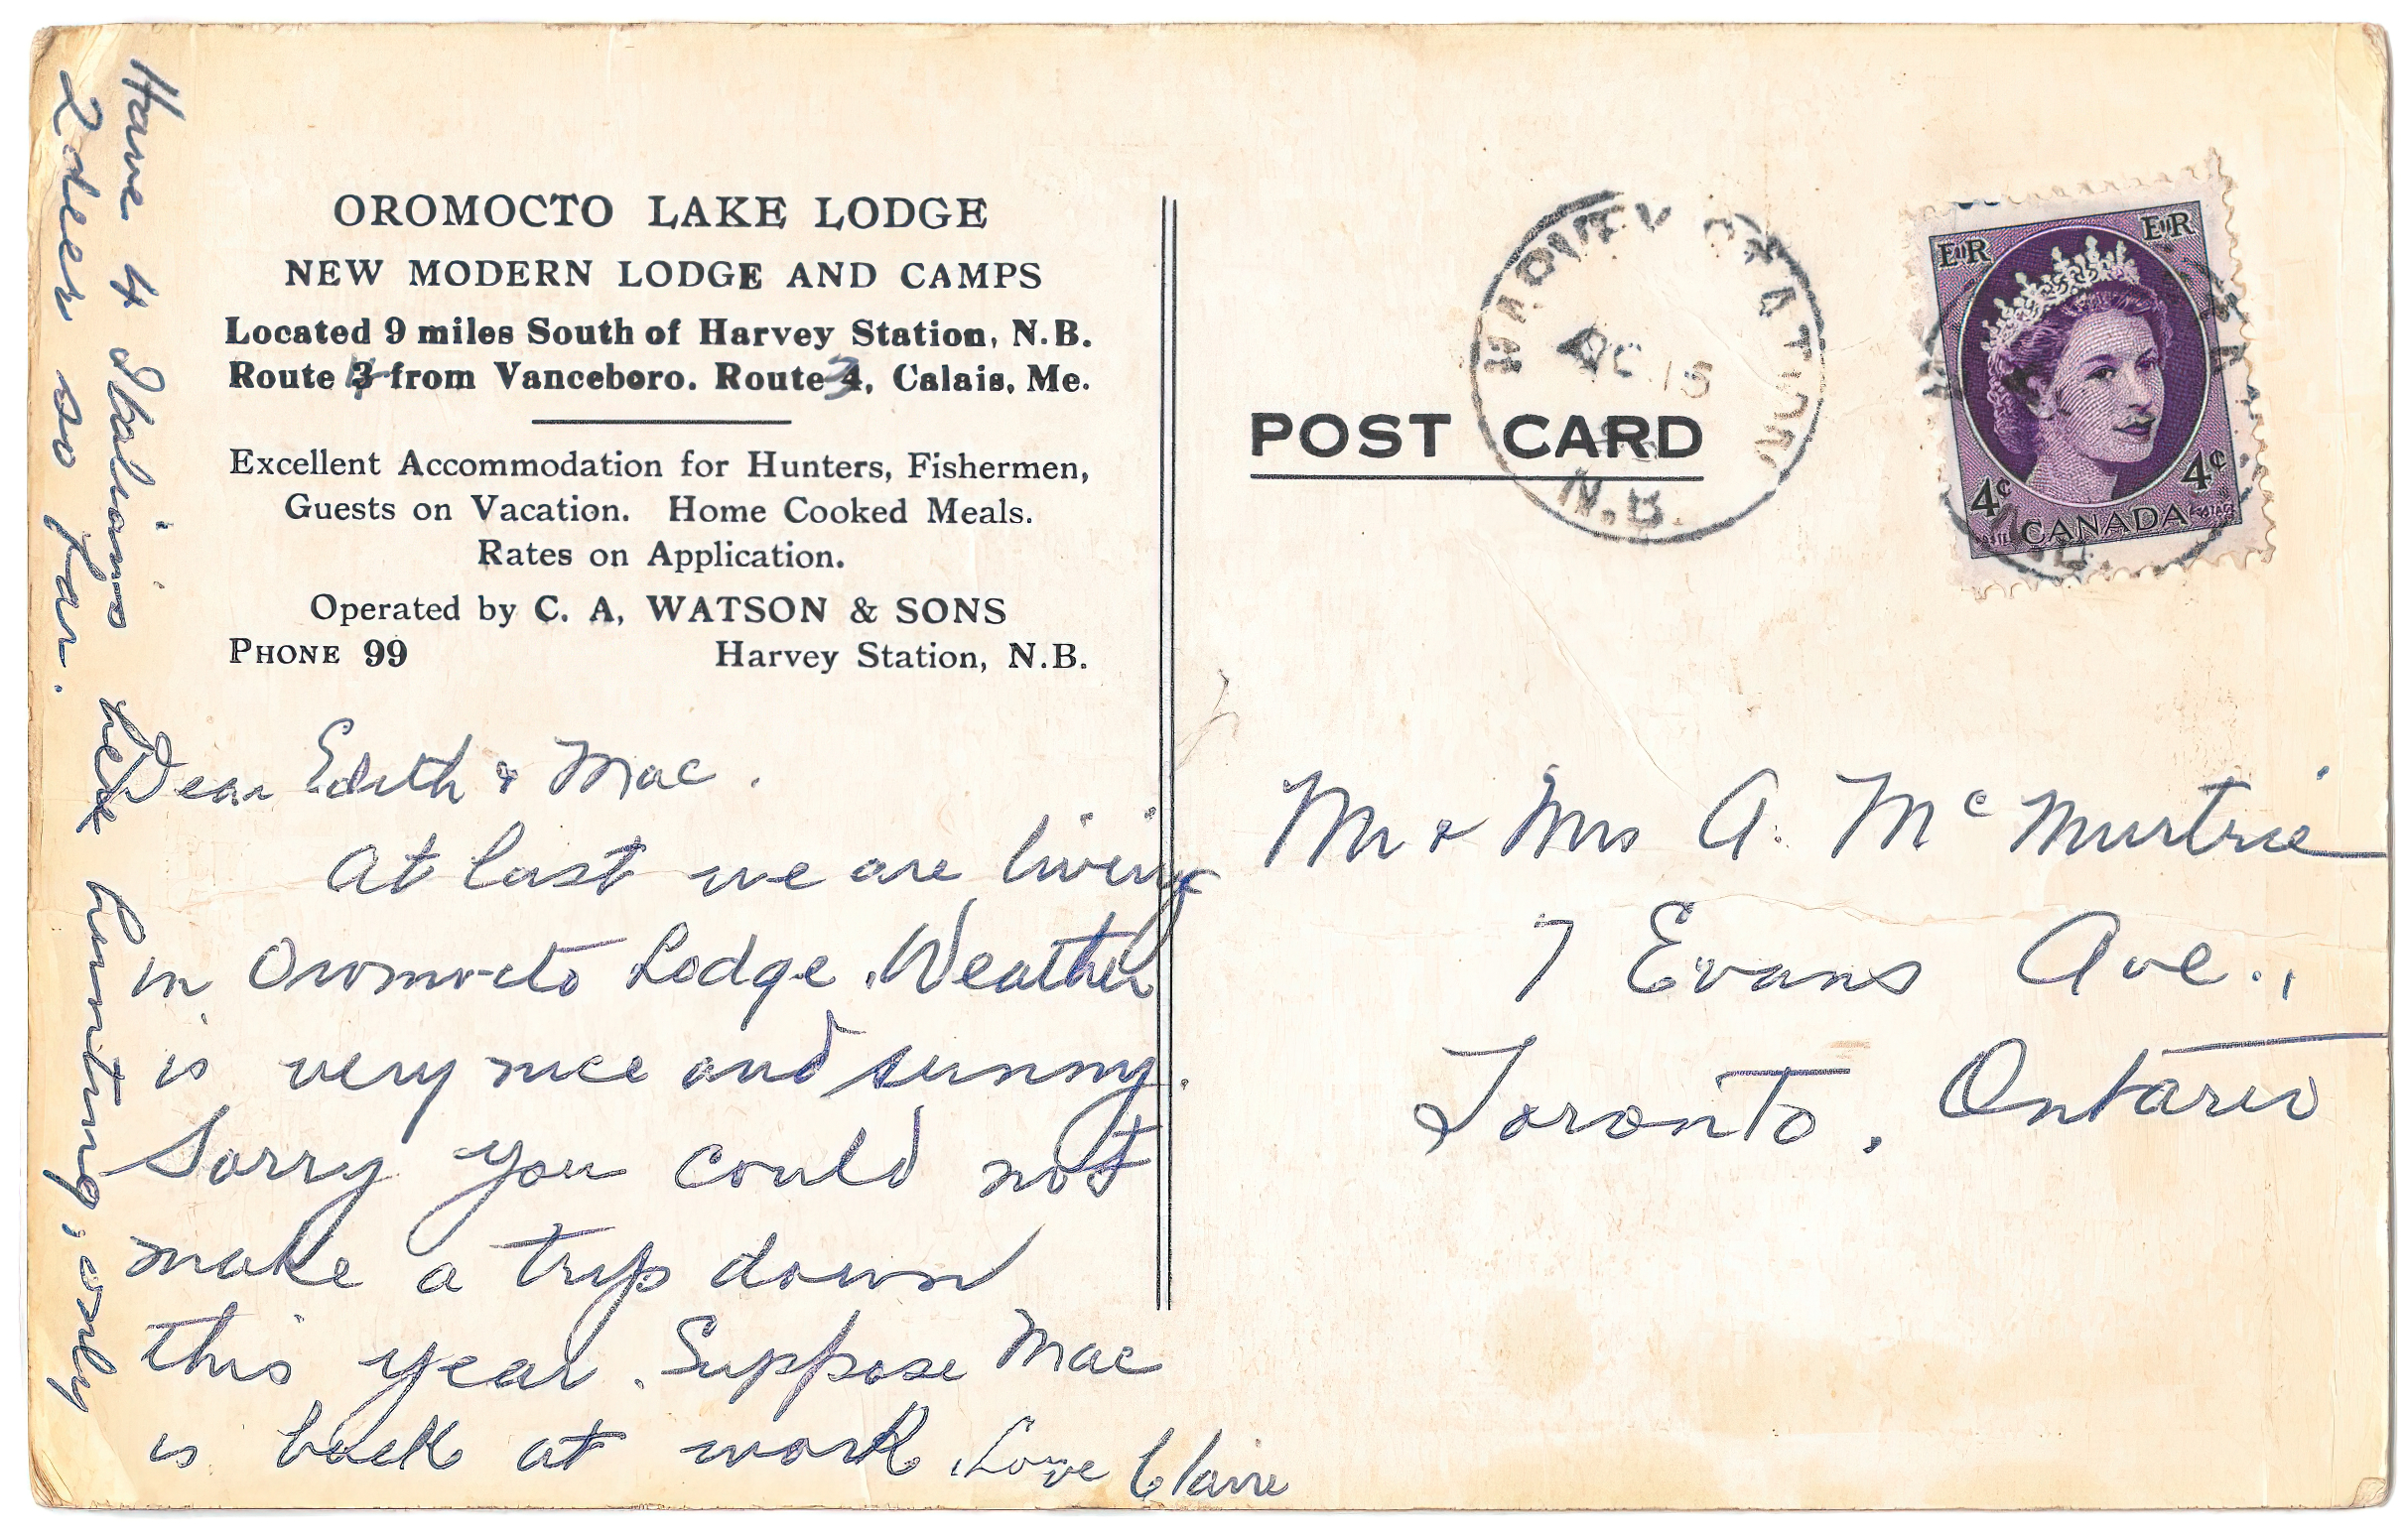 OROMOCTO LAKE LODGE
NEW MODERN LODGE AND CAMPS
Located 9 miles South of Harvey Station, N.B.
Route 4 from Vanceboro. Route 3, Calais, Me.
Excellent Accommodation for Hunters, Fishermen,
Guests on Vacation. Home Cooked Meals.
Rates on Application.
Operated by C. A. WATSON & SONS
PHONE 99 Harvey Station, N.B.
Dear Edith & Mac.
At last we are living
in Oromocto Lodge. Weather
is very nice and sunny.
Sorry you could not
make a trip down
this year. Suppose Mac
is back at work. Love Claire
Have 4 Italians here hunting, only
2 deer so far.
POST CARD
HARVEY STATION
15
N.B.
E II R
E II R
4¢
4¢
CANADA
POSTAGE
Mr & Mrs A. McMurtrie
7 Evans Ave.,
Toronto, Ontario